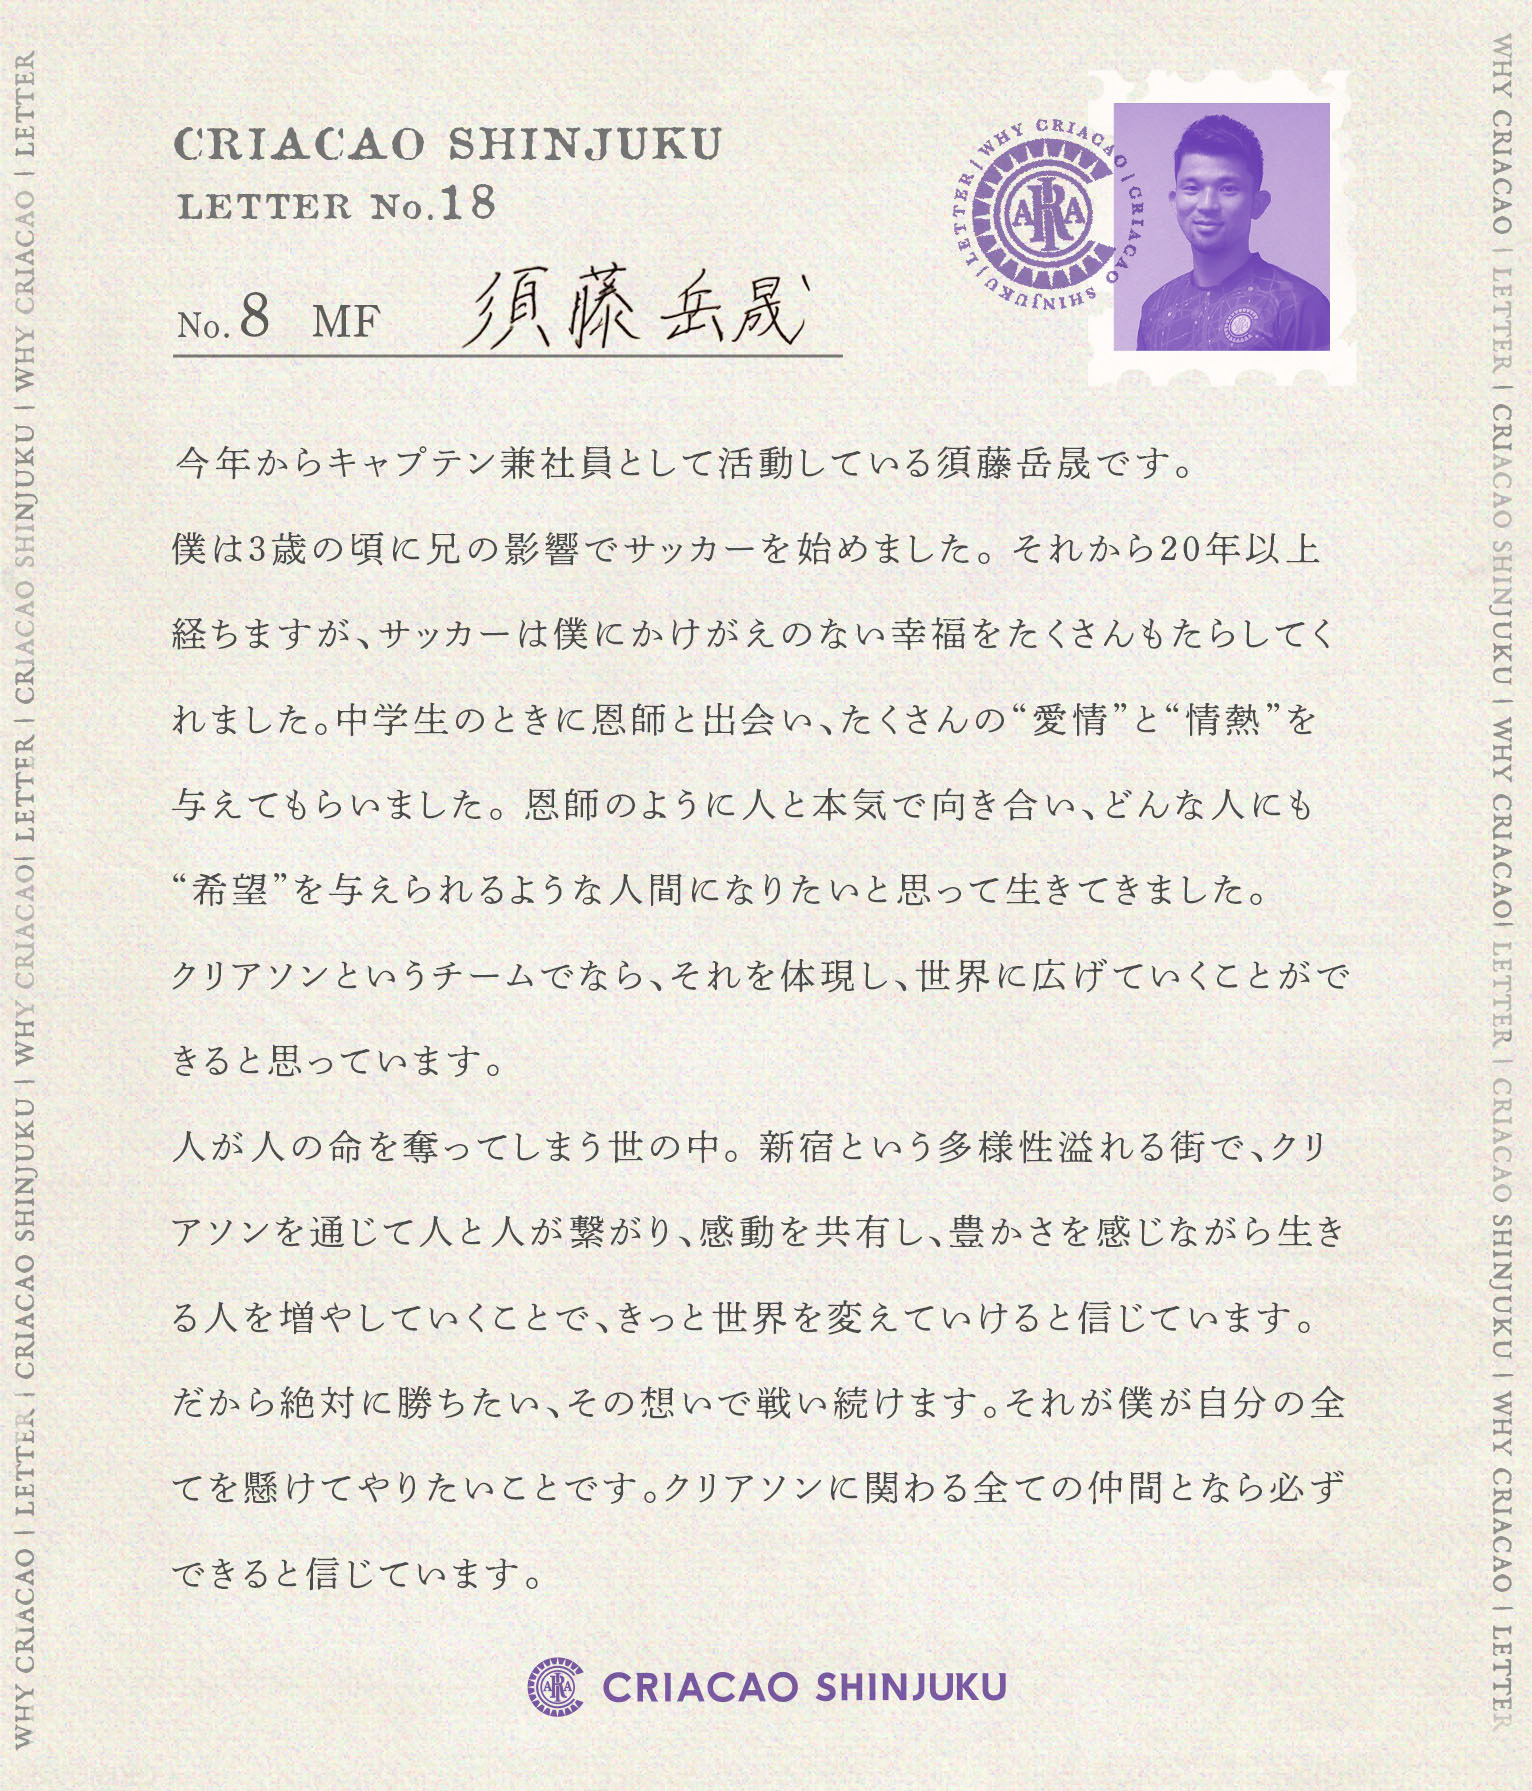 CRIACAO SHINJUKU
LETTER No.18
No.8 MF 須藤岳晟
WHY CRIACAO | CRIACAO SHINJUKU | LETTER |
ARA
今年からキャプテン兼社員として活動している須藤岳晟です。
僕は3歳の頃に兄の影響でサッカーを始めました。それから20年以上
経ちますが、サッカーは僕にかけがえのない幸福をたくさんもたらしてく
れました。中学生のときに恩師と出会い、たくさんの“愛情”と“情熱”を
与えてもらいました。恩師のように人と本気で向き合い、どんな人にも
“希望”を与えられるような人間になりたいと思って生きてきました。
クリアソンというチームでなら、それを体現し、世界に広げていくことがで
きると思っています。
人が人の命を奪ってしまう世の中。新宿という多様性溢れる街で、クリ
アソンを通じて人と人が繋がり、感動を共有し、豊かさを感じながら生き
る人を増やしていくことで、きっと世界を変えていけると信じています。
だから絶対に勝ちたい、その想いで戦い続けます。それが僕が自分の全
てを懸けてやりたいことです。クリアソンに関わる全ての仲間となら必ず
できると信じています。
ARA CRIACAO SHINJUKU
WHY CRIACAO | LETTER | CRIACAO SHINJUKU | WHY CRIACAO| LETTER | CRIACAO SHINJUKU | WHY CRIACAO | LETTER
WHY CRIACAO | LETTER | CRIACAO SHINJUKU | WHY CRIACAO| LETTER | CRIACAO SHINJUKU | WHY CRIACAO | LETTER